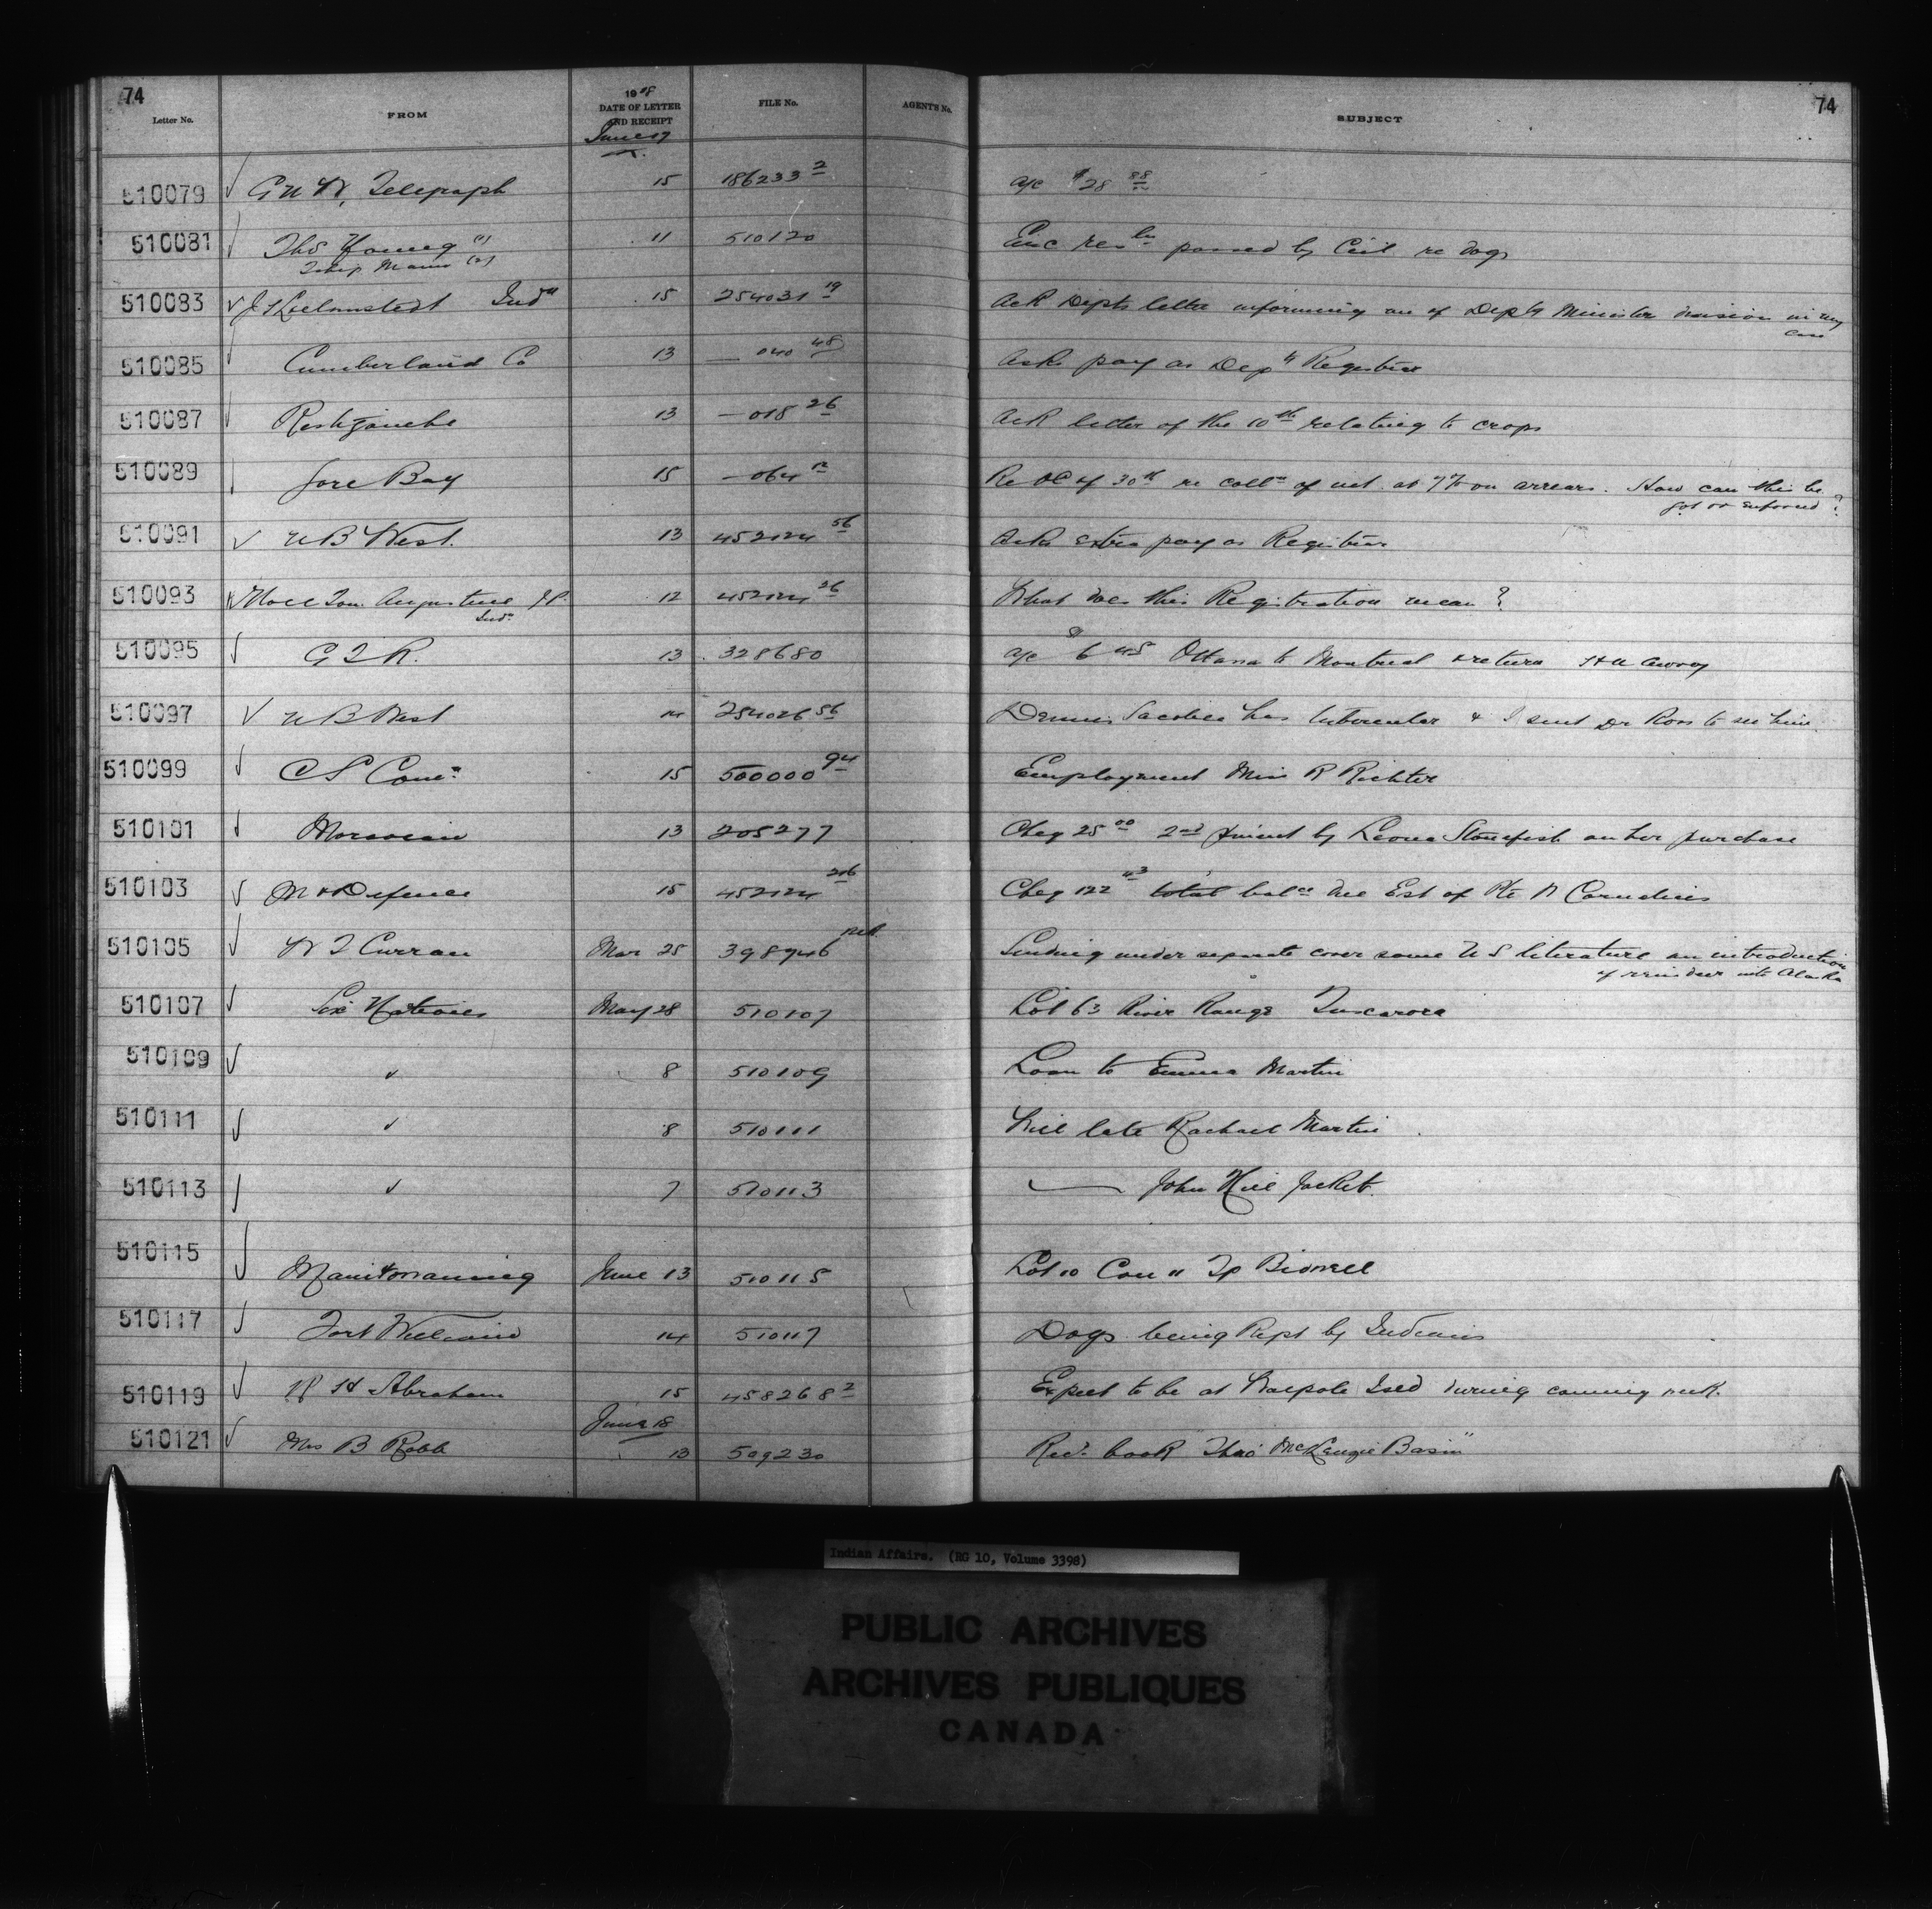 74
74
Letter No. FROM 1918 DATE OF LETTER AND RECEIPT FILE No. AGENT'S No. SUBJECT
June 17
510079 G N W, Telegraph 15 186233 2 a/c $28 88
510081 Thos Young (1) 11 510120 Enc resln passed by Ccil re dogs
510083 Indn 15 254031 19 Ack Depts letter informing me of Depty Minister decision in my
case
510085 Cumberland Co 13 — 040 48 Asks pay as Depty Registrar
510087 Restigouche 13 — 018 26 Ack letter of the 10th relating to crops
510089 Gore Bay 15 — 064 12 Re OC of 30th re colln of int. at 7% on arrears. How can this be
got or enforced?
510091 N B West. 13 452124 56 Asks extra pay as Registrar
510093 Tom Augustine J.P. 12 452124 26 What does this Registration mean?
Indn
510095 G T R. 13 328680 a/c $6 45 Ottawa to Montreal & return
510097 N B West 14 254026 56 Dennis has tubercular & I sent Dr Ross to see him.
510099 C S Comn 15 500000 94 Employment Miss R Richter
510101 Moravian 13 205277 Cheq 25 00 2nd by Leona Stonefish on her purchase
510103 M & Defence 15 452124 Cheq 122 43 total balce due Est of Pte N Cornelius
510105 W T Curran Mar 25 398946 Sending under separate cover some U S literature on introduction
of reindeer into Alaska
510107 Six Nations May 28 510107 Lot 63 River Range Tuscarora
510109 " 8 510109 Loan to Emma Martin
510111 " 8 510111 Will late Rachael Martin
510113 " 7 510113 — John Hill Jacket.
510115 Manitowaning June 13 510115 Lot 10 Con 11 Tp Bidwell
510117 Fort William 14 510117 Dogs being kept by Indians
510119 R H Abraham 15 458268 2 Expect to be at Walpole Isld during coming week.
June 18
510121 Mrs B Robb 13 509230 Recd. book "Thro' McKenzie Basin"
Indian Affairs. (RG 10, Volume 3398)
PUBLIC ARCHIVES
ARCHIVES PUBLIQUES
CANADA